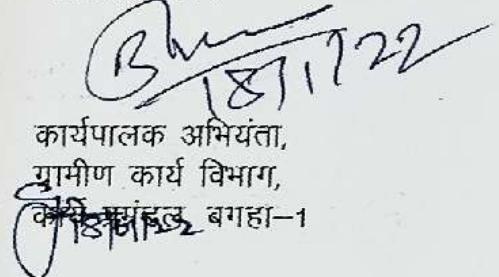 18/1/22
कार्यपालक अभियंता,
ग्रामीण कार्य विभाग,
कार्य प्रमंडल, बगहा–1